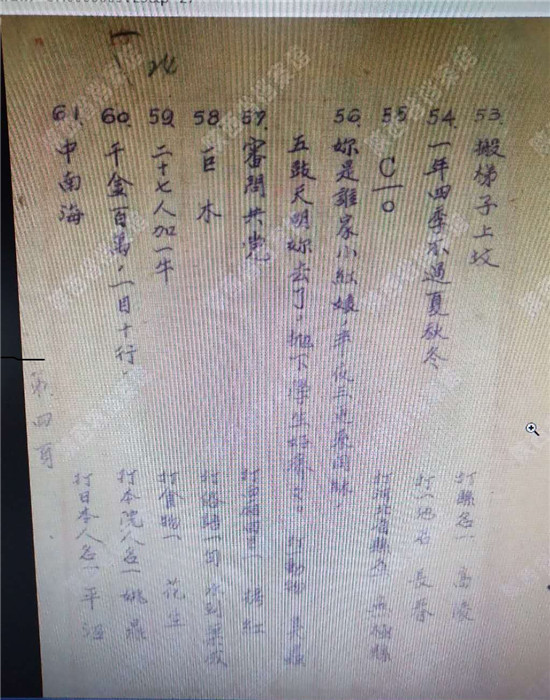 53. 搬梯子上坟 打縣名一 高凌
54. 一年四季不过夏秋冬 打一地名 長春
55. C/0 打河北省縣名 無極縣
56. 妳是誰家小紅娘，半夜三更來鬧
五鼓天明妳去了，抛下學生好 打動物 臭蟲
57. 審問共党
58. 巨木 打俗語一句 水到渠成
59. 二十七人加一牛 打食物一 花生
60. 千金百萬，一目十行， 打本院人名一 姚鼎
61. 中南海 打日本人名一 平沼
第四頁